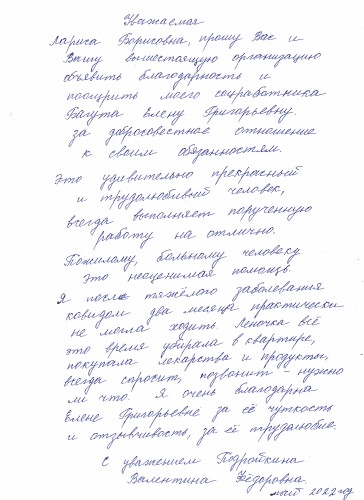 Уважаемая
Лариса Борисовна, прошу Вас и
Вашу вышестоящую организацию
объявить благодарность и
поощрить моего соцработника
Багута Елену Григорьевну.
за добросовестное отношение
к своим обязанностям.
Это удивительно прекрасный
и трудолюбивый человек,
всегда выполняет порученную
работу на отлично.
Пожилому, больному человеку
это неоценимая помощь.
Я после тяжёлого заболевания
ковидом два месяца практически
не могла ходить. Леночка всё
это время убирала в квартире,
покупала лекарства и продукты,
всегда спросит, позвонит – нужно
ли что. Я очень благодарна
Елене Григорьевне за её чуткость
и отзывчивость, за её трудолюбие.
С уважением Подройкина
Валентина Фёдоровна.
май 2022 год